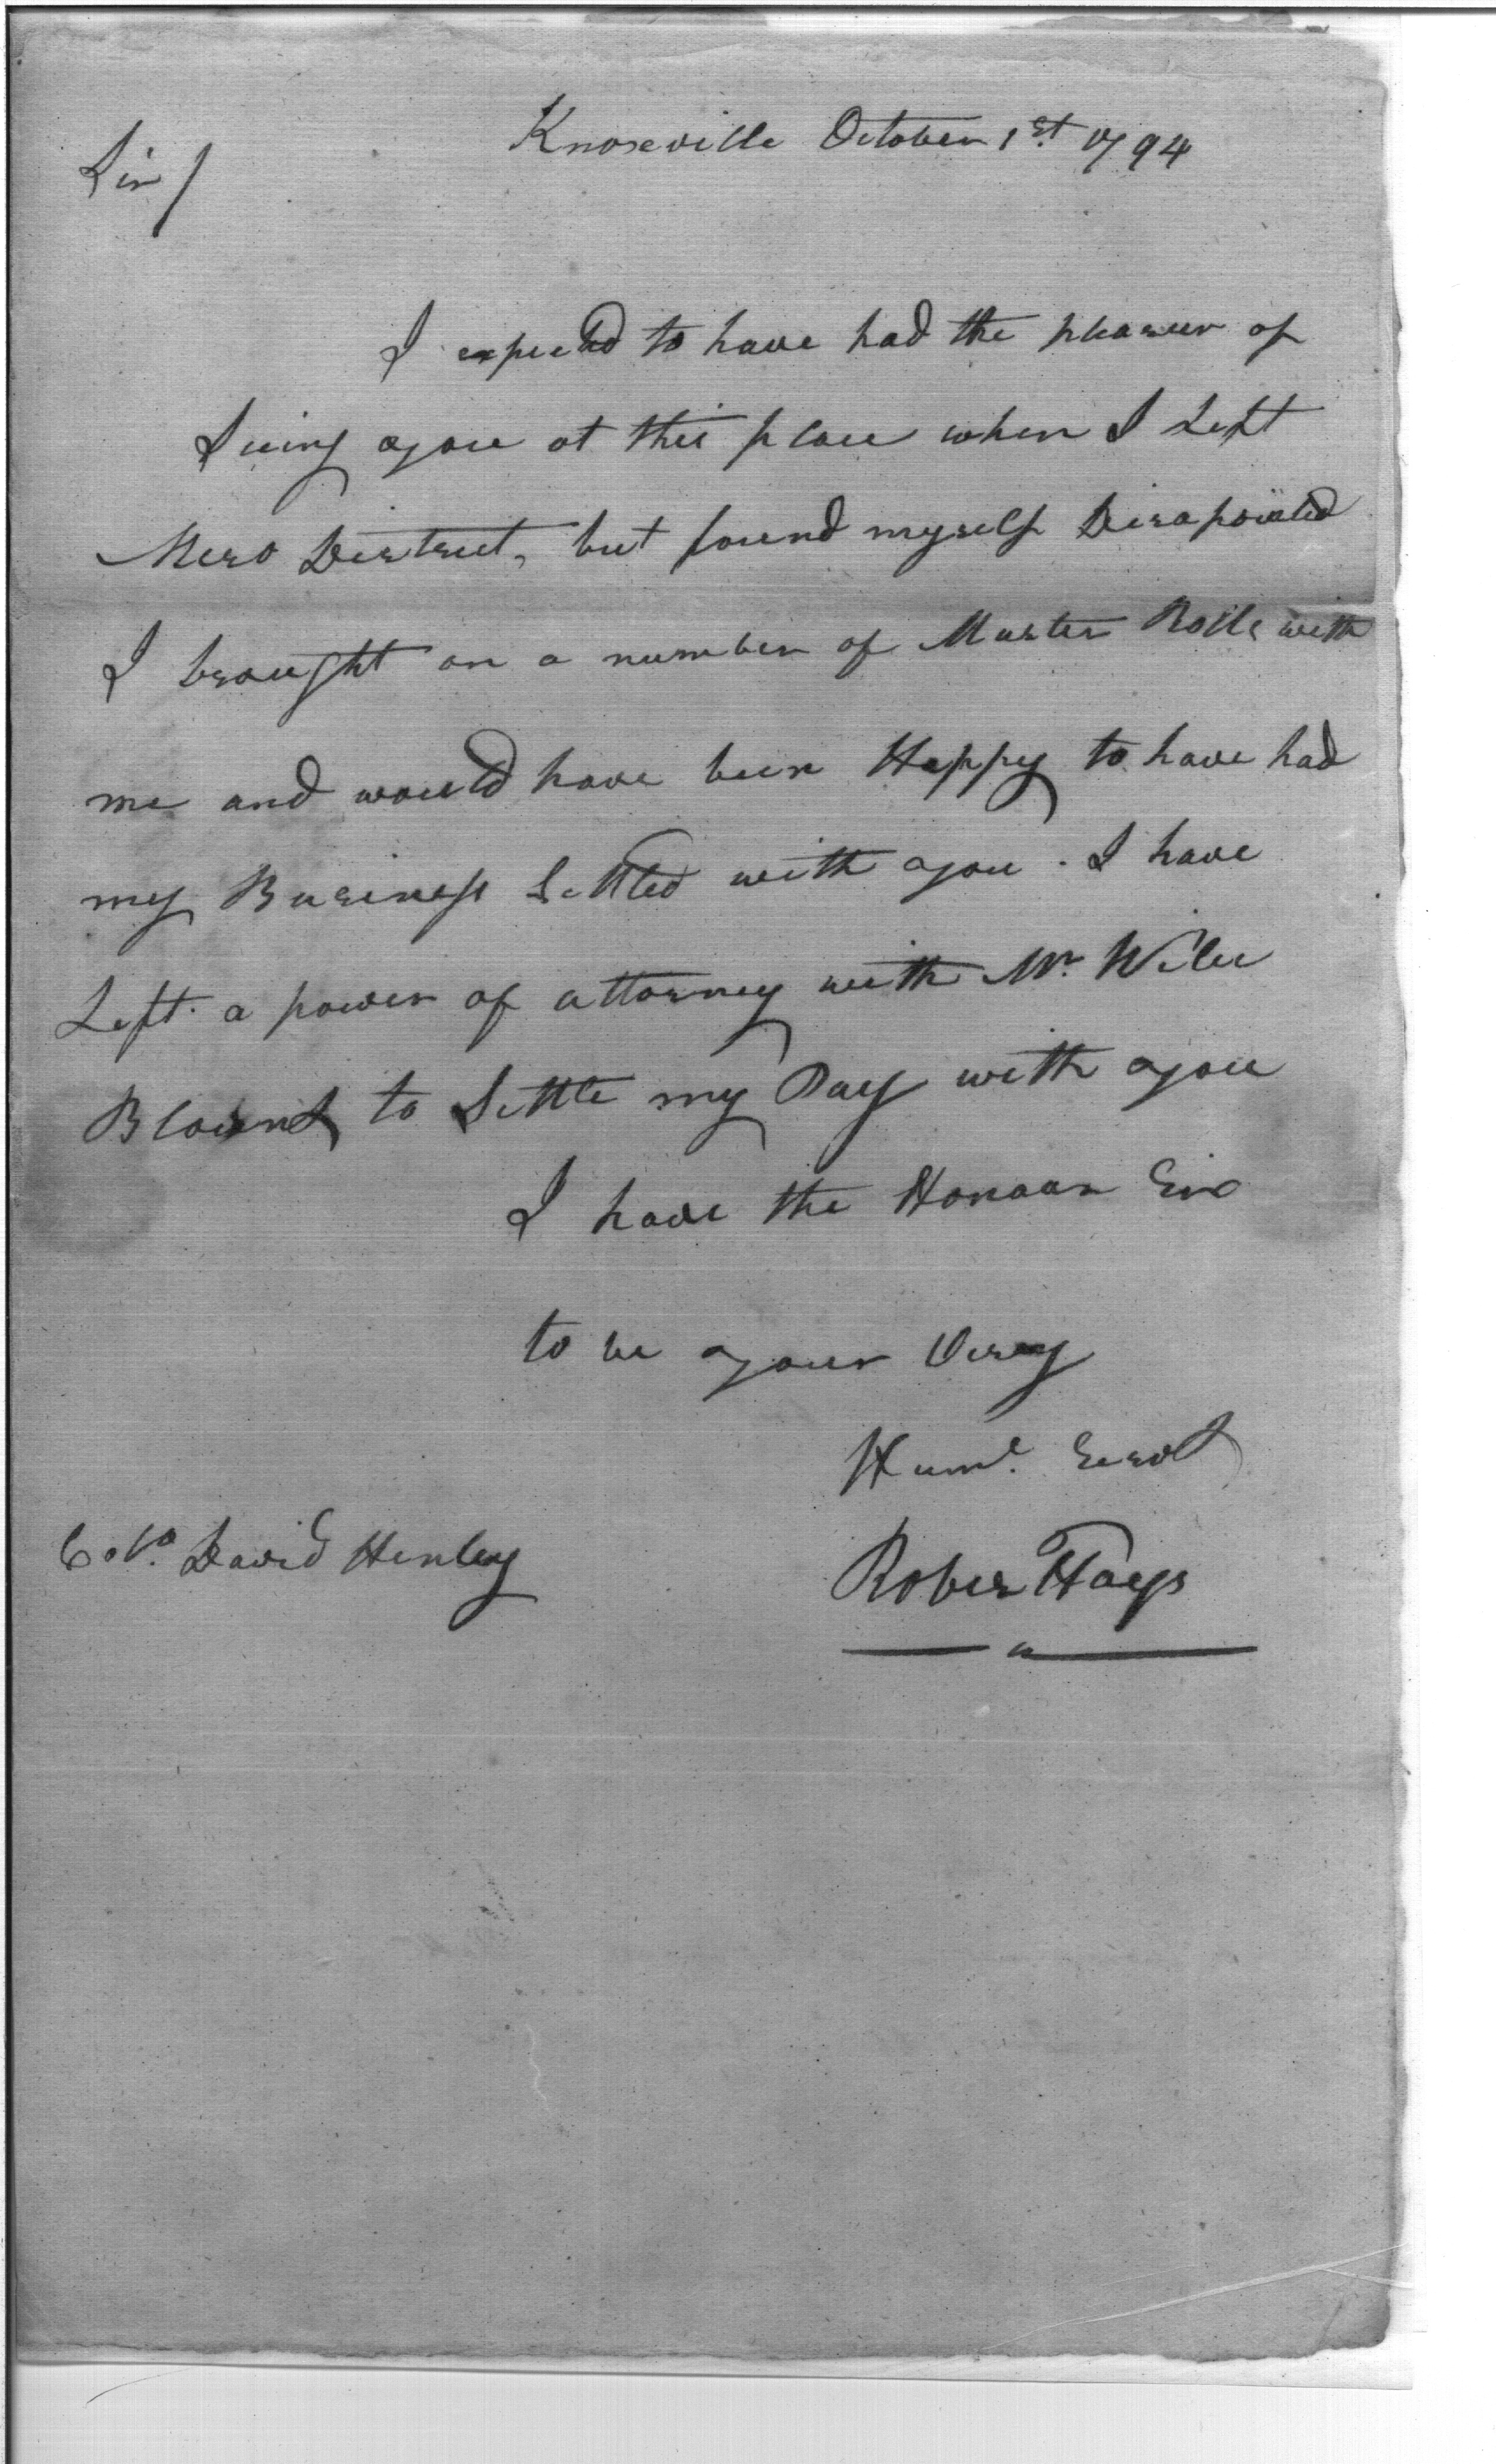 Knoxeville October 1st. 1794
Sir /
I expected to have had the pleasuer of
Seeing you at this place when I Left
Mero District, but found myself Disapointed
I brought on a number of Muster Rolls with
me and would have been Happy to have had
my Business Settled with you. I have
Left a power of attorney with Mr. Wilie
Blount to Settle my Pay with you
I have the Honour Sir
to be your Very
Humle. Servt
Colo. David Henley
Rober Hays